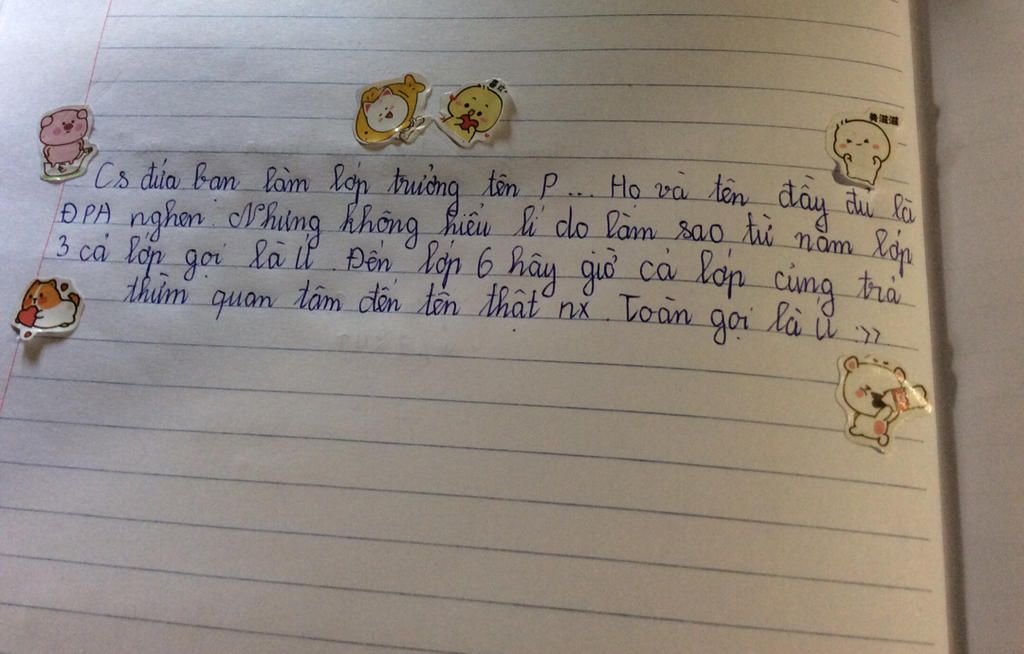 Cs đứa bạn làm lớp trưởng tên P... Họ và tên đầy đủ là
ĐPA nghen. Nhưng không hiểu lí do làm sao, từ năm lớp
3 cả lớp gọi là Ú. Đến lớp 6 hây giờ cả lớp cũng trả
thừm quan tâm đến tên thật nx. Toàn gọi là Ú :>>